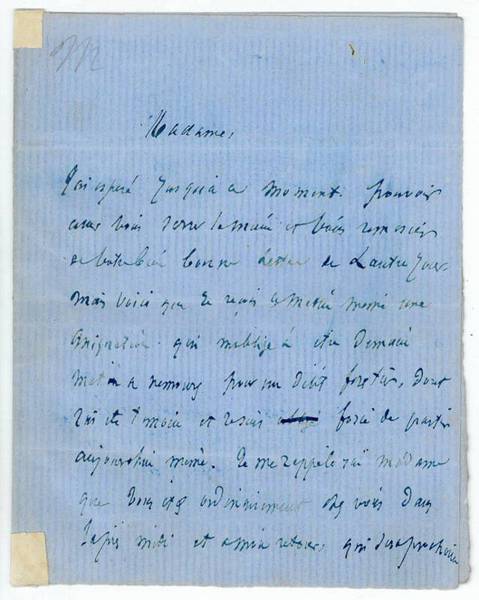 Madame,
J'ai espéré jusqu'à ce moment pouvoir
aller vous serrer la main et vous remercier
de votre bien bonne lettre de l'autre jour
mais voici que je reçois ce matin même une
assignation qui m'oblige à être demain
matin à nemours pour un délit forestier, dont
j'ai été témoin et je suis forcé de partir
aujourd'hui même. Je me rappelerai madame
que vous êtes ordinairement chez vous dans
l'après midi et à mon retour, qui sera prochain